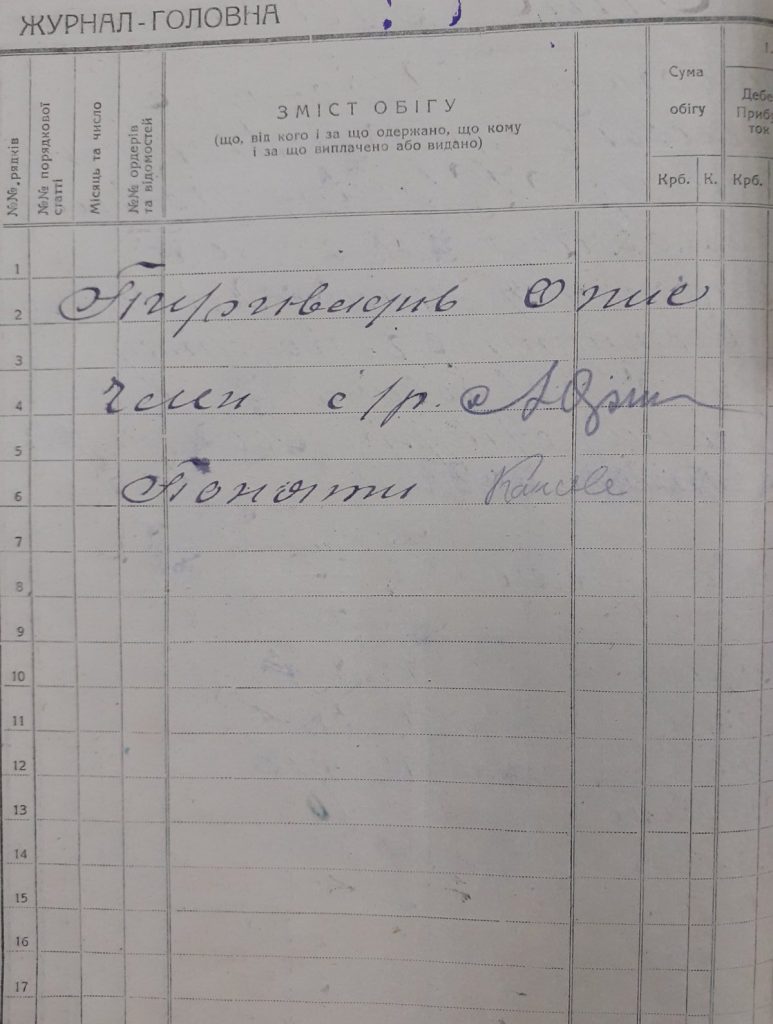 ЖУРНАЛ-ГОЛОВНА
№№ рядків
№№ порядкової статті
Місяць та число
№№ ордерів та відомостей
ЗМІСТ ОБІГУ
(що, від кого і за що одержано, що кому
і за що виплачено або видано)
Сума
обігу
Крб. К.
Крб.
1
2 опис
3
4 член с/р.
5
6 Поняти
7
8
9
10
11
12
13
14
15
16
17